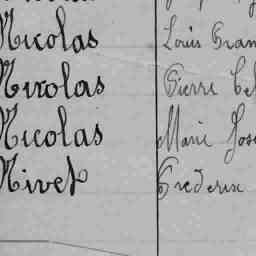 Nicolas Louis
Nicolas Pierre
Nicolas Marie
Nivet Frederic